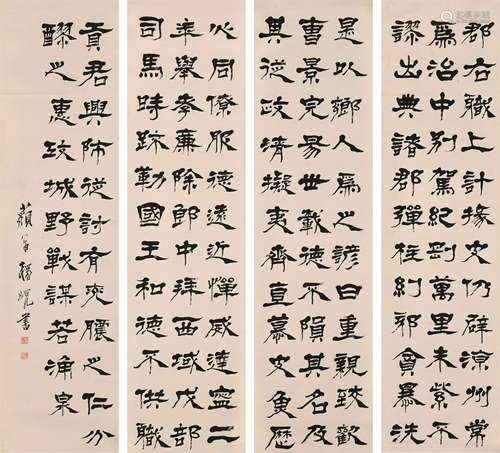 郡右職上計掾史仍辟涼州常
為治中別駕紀剛萬里朱紫不
謬出典諸郡彈枉糾邪貪暴洗
是以鄉人為之諺曰重親致歡
曹景完易世載德不隕其名及
其從政清擬夷齊直慕史魚歷
心同僚服德遠近憚威建寧二
年舉孝廉除郎中拜西域戊部
司馬時疎勒國王和德不供職
貢君興師征討有兗膿之仁分
醪之惠攻城野戰謀若涌泉
書